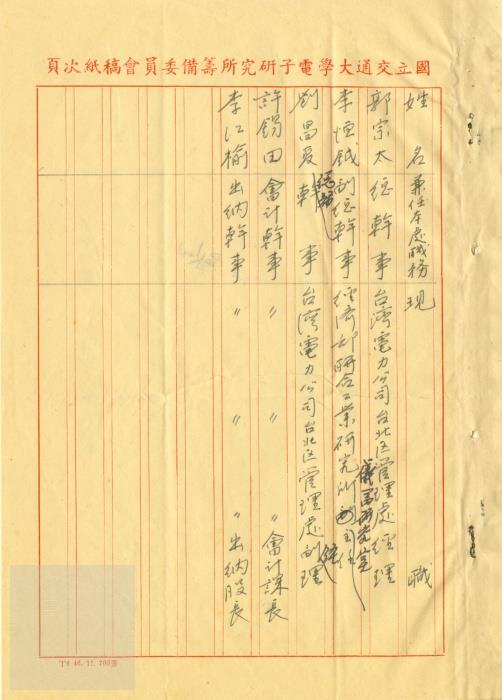 國立交通大學電子研究所籌備委員會稿紙次頁
姓名 兼任本處職務 現職
郭宗太 總幹事 台灣電力公司台北區管理處經理
李恒鉞 副總幹事 經濟部聯合工業研究所 儀器研究室主任
劉昌夏 總務幹事 台灣電力公司台北區管理處副理
許錫田 會計幹事 〃 〃 〃 會計課長
李江榆 出納幹事 〃 〃 〃 出納股長
T4 46. 12. 200番